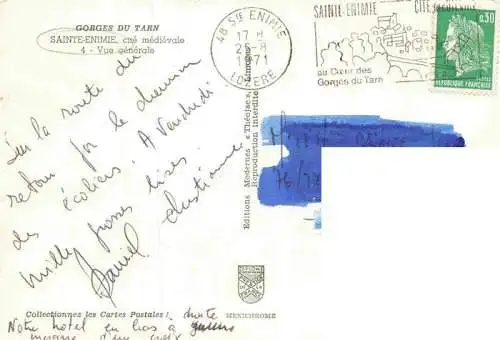 GORGES DU TARN
SAINTE-ENIMIE, cité médiévale
4 - Vue générale
48 Ste ENIMIE
17 H
25-8
1971
LOZERE
SAINTE-ENIMIE
CITÉ
au Cœur des
Gorges du Tarn
0,30
REPUBLIQUE FRANÇAISE
Sur la route du
retour par le chemin
des écoliers. A Vendredi
mille grosses bises.
Daniel Christiane
Editions Modernes « Théojac », Limoges
Reproduction Interdite
Collectionnez les Cartes Postales !
MEXICHROME
Notre hôtel en bas à droite